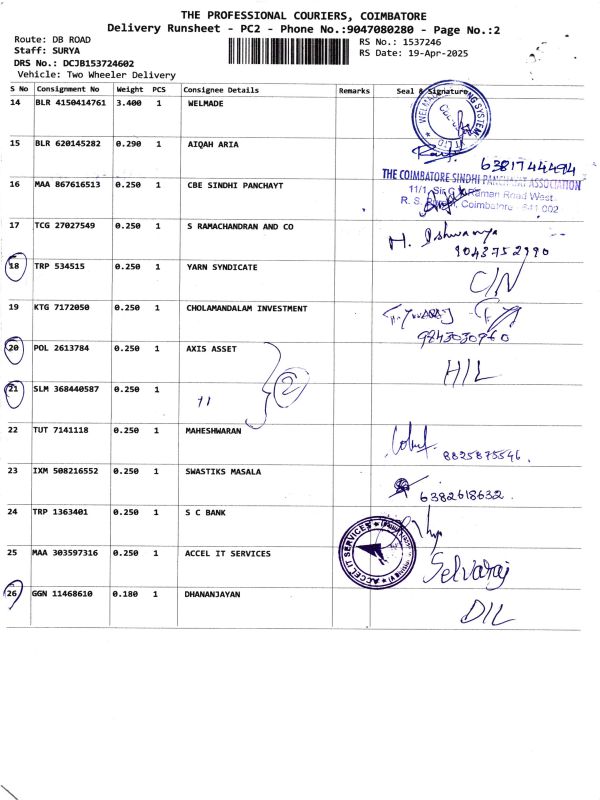 THE PROFESSIONAL COURIERS, COIMBATORE
Delivery Runsheet - PC2 - Phone No.:9047080280 - Page No.:2
Route: DB ROAD
Staff: SURYA
DRS No.: DCJB153724602
Vehicle: Two Wheeler Delivery
RS No.: 1537246
RS Date: 19-Apr-2025
S No Consignment No Weight PCS Consignee Details Remarks Seal & Signature
14 BLR 4150414761 3.400 1 WELMADE
15 BLR 620145282 0.290 1 AIQAH ARIA 6381744494
16 MAA 867616513 0.250 1 CBE SINDHI PANCHAYT
THE COIMBATORE SINDHI PANCHAYAT ASSOCIATION
Raman Road West
Coimbatore - 641 002
17 TCG 27027549 0.250 1 S RAMACHANDRAN AND CO
9043752990
18 TRP 534515 0.250 1 YARN SYNDICATE C/N
19 KTG 7172050 0.250 1 CHOLAMANDALAM INVESTMENT
9843030960
20 POL 2613784 0.250 1 AXIS ASSET H/L
2
21 SLM 368440587 0.250 1 11
22 TUT 7141118 0.250 1 MAHESHWARAN 8825875546.
23 IXM 508216552 0.250 1 SWASTIKS MASALA 6382618632.
24 TRP 1363401 0.250 1 S C BANK
25 MAA 303597316 0.250 1 ACCEL IT SERVICES Selvaraj
ACCEL IT SERVICES
26 GGN 11468610 0.180 1 DHANANJAYAN D/L